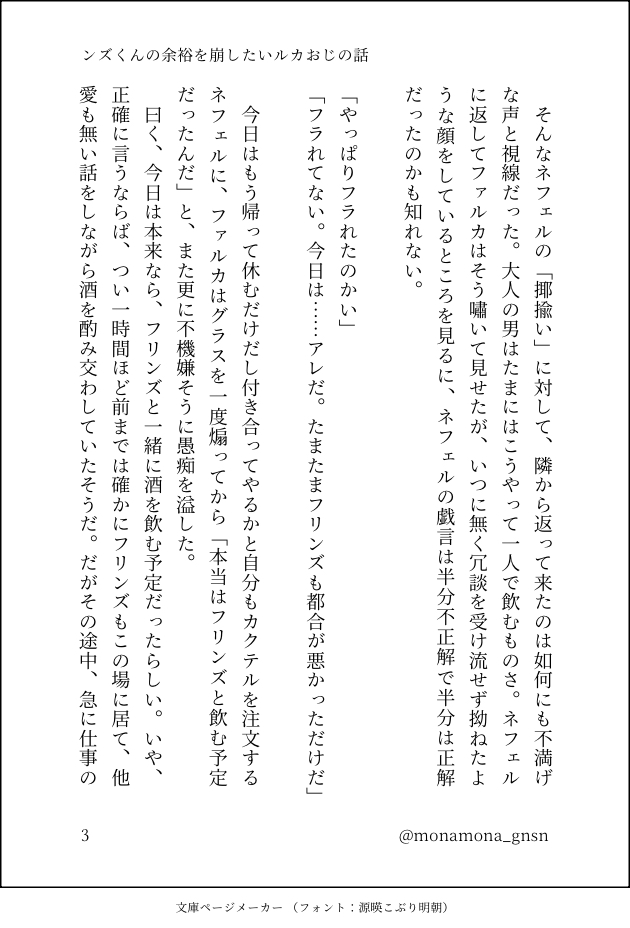 ンズくんの余裕を崩したいルカおじの話
　そんなネフェルの「揶揄い」に対して、隣から返って来たのは如何にも不満げ
な声と視線だった。大人の男はたまにはこうやって一人で飲むものさ。ネフェル
に返してファルカはそう嘯いて見せたが、いつに無く冗談を受け流せず拗ねたよ
うな顔をしているところを見るに、ネフェルの戯言は半分不正解で半分は正解
だったのかも知れない。
「やっぱりフラれたのかい」
「フラれてない。今日は……アレだ。たまたまフリンズも都合が悪かっただけだ」
　今日はもう帰って休むだけだし付き合ってやるかと自分もカクテルを注文する
ネフェルに、ファルカはグラスを一度煽ってから「本当はフリンズと飲む予定
だったんだ」と、また更に不機嫌そうに愚痴を溢した。
　曰く、今日は本来なら、フリンズと一緒に酒を飲む予定だったらしい。いや、
正確に言うならば、つい一時間ほど前までは確かにフリンズもこの場に居て、他
愛も無い話をしながら酒を酌み交わしていたそうだ。だがその途中、急に仕事の
3
@monamona_gnsn
文庫ページメーカー（フォント：源暎こぶり明朝）